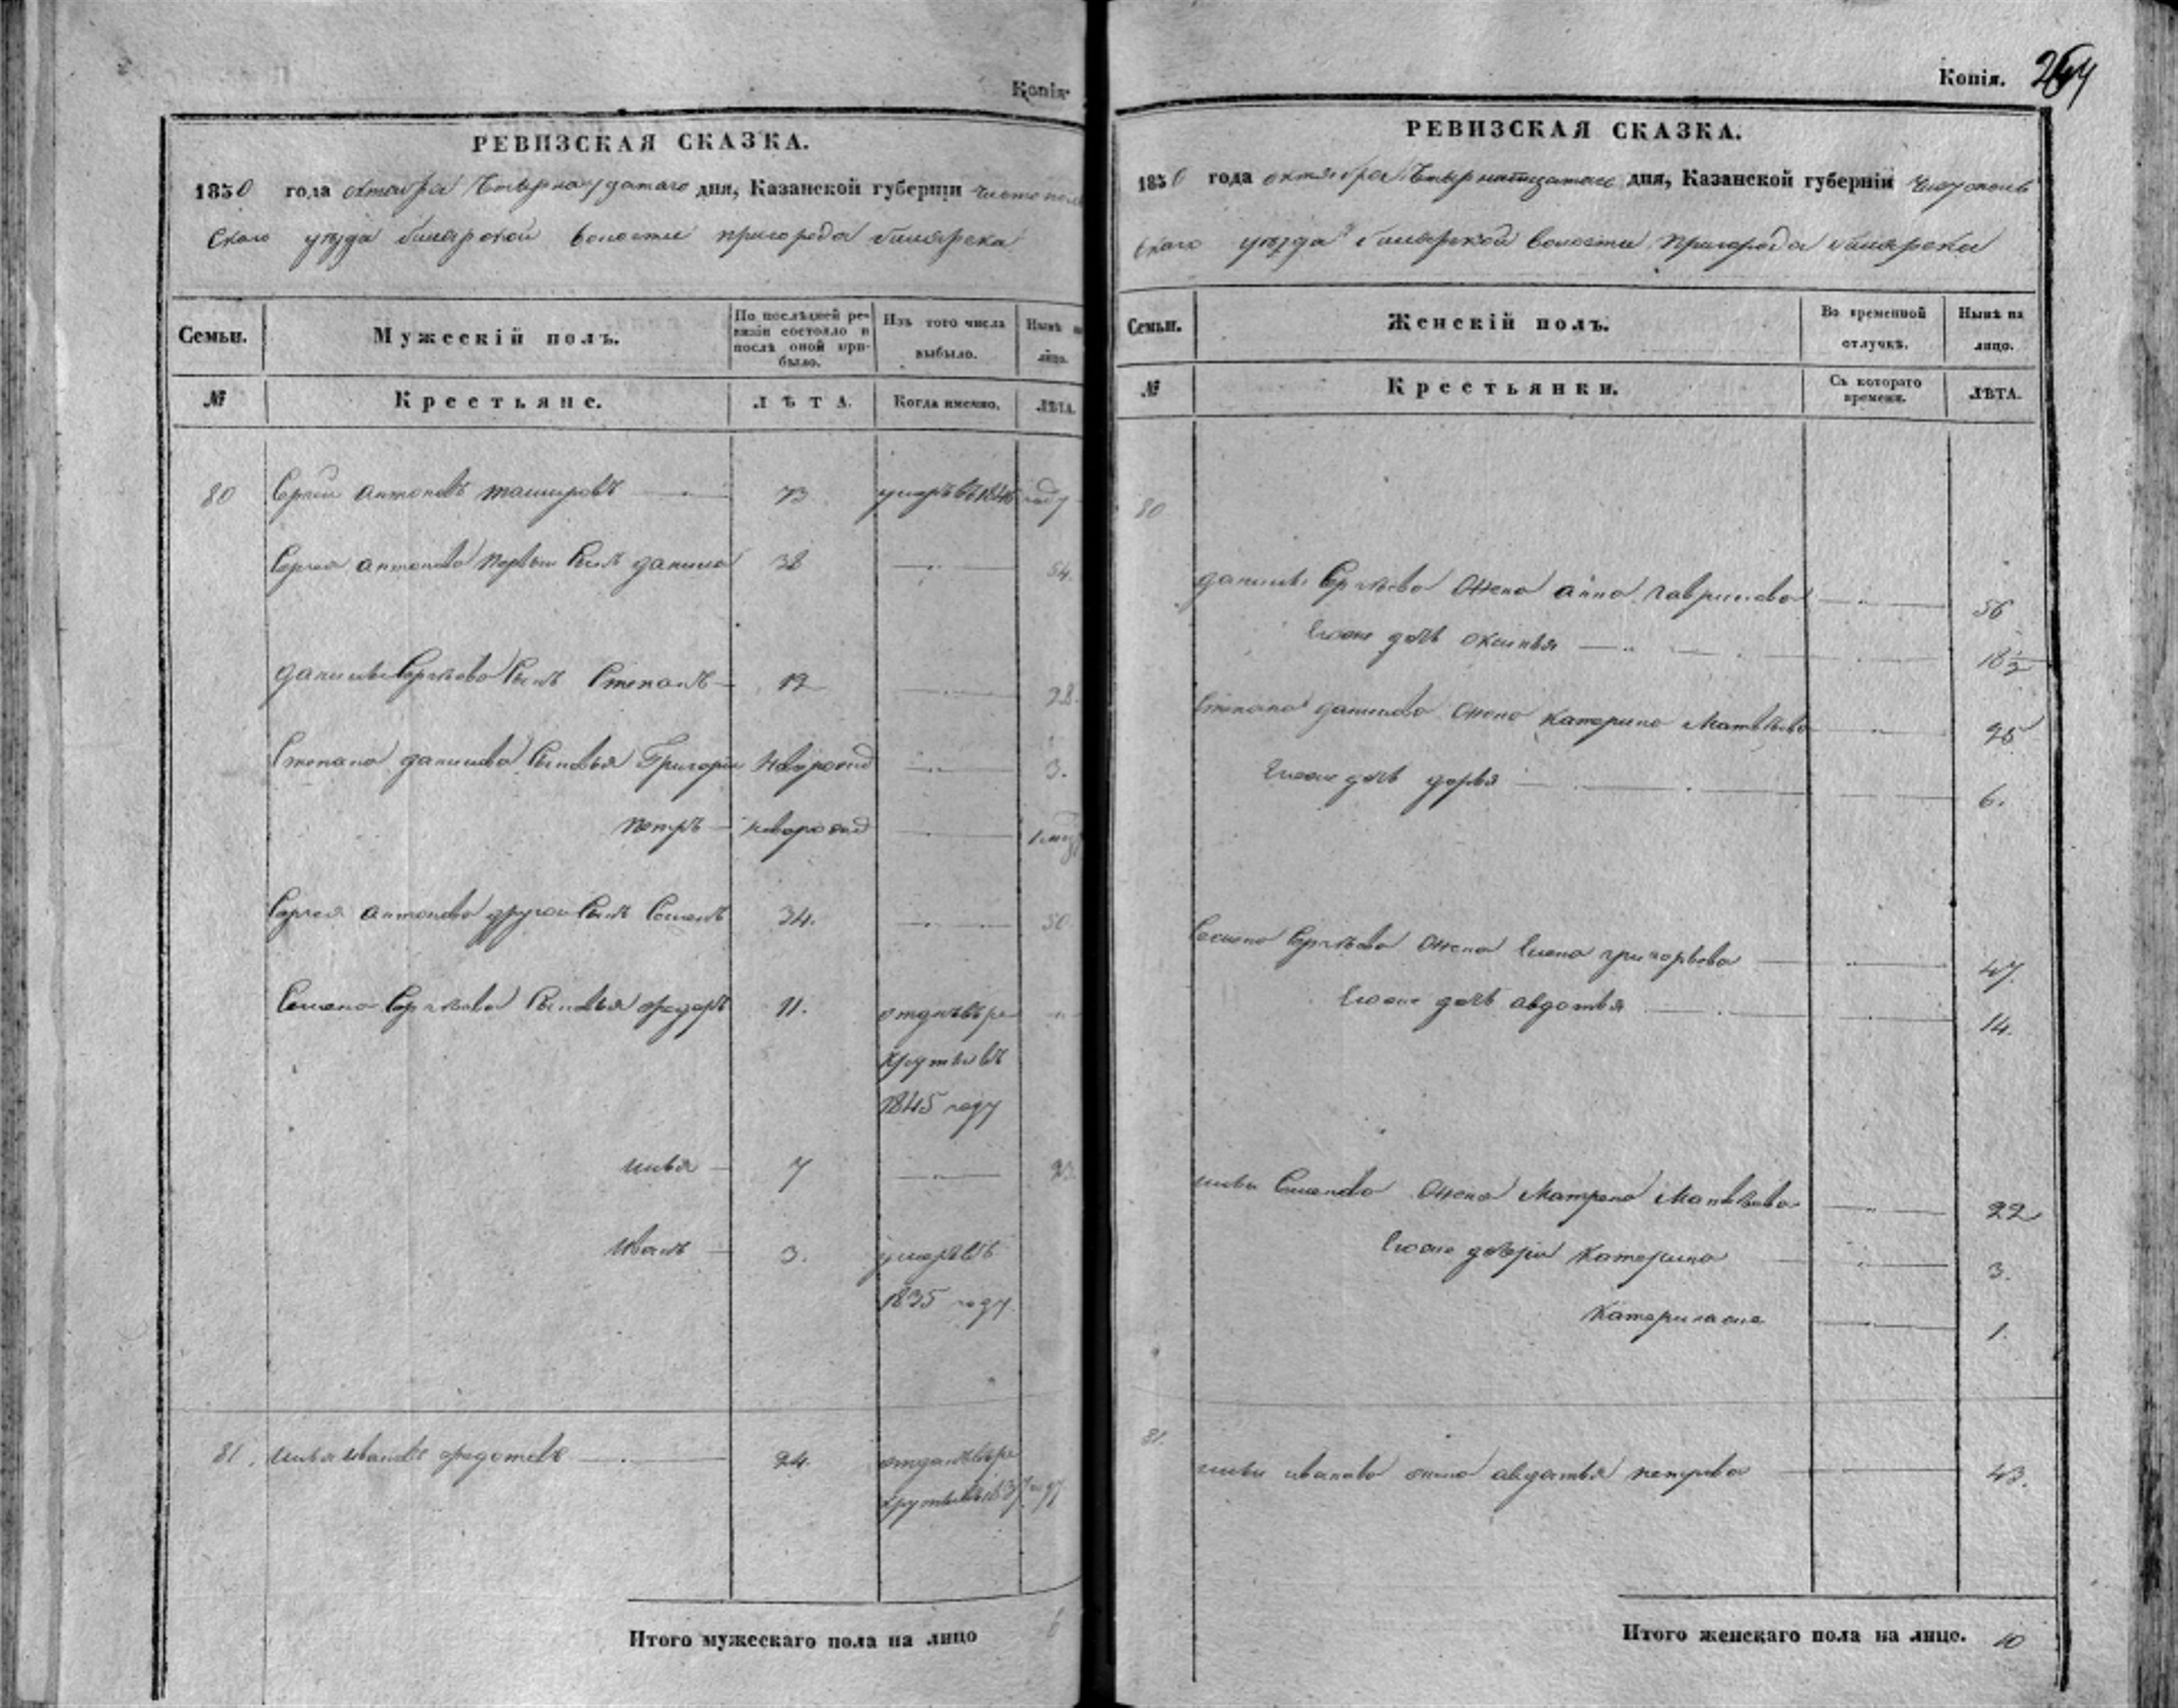 Копія.
РЕВИЗСКАЯ СКАЗКА.
1850 года октября Четырнадцатаго дня, Казанской губерніи Чистополь
скаго уѣзда билярской волости пригорода билярска
Семьи.
Мужескій полъ.
По послѣдней ре-
визіи состояло и
послѣ оной при-
было.
Изъ того числа
выбыло.
Нынѣ на
лицо.
№
Крестьяне.
ЛѢТА.
Когда именно.
ЛѢТА.
80 Сергѣй антоновъ 73 умеръ въ 1846 году
Сергея антонова первый Сынъ данило 38 54.
данилы Сергѣева Сынъ Степанъ 12 28.
Степана данилова Сыновья Григорий новорожд 3.
петръ новорожд
Сергея антонова другой Сынъ Семенъ 34. 50
Семена Сергѣева Сыновья федоръ 11. отданъ въ ре
круты въ
1845 году
илья 7 23
Иванъ 3. умеръ въ
1835 году
81. илья ивановъ федотовъ 24. отданъ въ ре
круты въ 1837 году
Итого мужескаго пола на лицо 6
Копія. 264
РЕВИЗСКАЯ СКАЗКА.
1850 года октября Четырнатцатаго дня, Казанской губерніи Чистополь
скаго уѣзда билярской волости пригорода билярска
Семьи.
Женскій полъ.
Во временной
отлучкѣ.
Нынѣ на
лицо.
№
Крестьянки.
Съ котораго
времени.
ЛѢТА.
80
данилы Сергѣева Жена анна гаврилова 56
Егоже дочь оксинья 18½
Степана данилова Жена Катерина Матвѣева 25
Егоже дочь дарья 6.
Семена Сергѣева Жена Елена григорьева 47.
Егоже дочь авдотья 14.
ильи Семенова Жена Матрена Матвѣева 22
Егоже дочери Катерина 3.
Катерина же 1.
81.
ильи иванова жена авдотья петрова 43.
Итого женскаго пола на лицо. 10